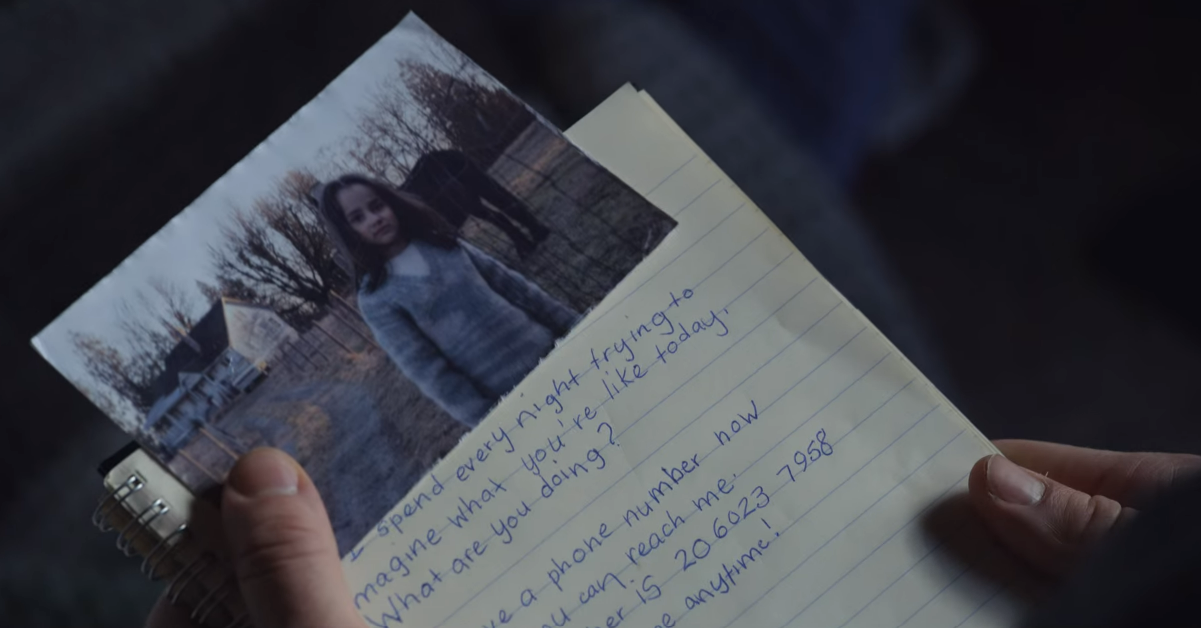 I spend every night trying to
magine what you're like today.
What are you doing?
ve a phone number now
ou can reach me.
ber is 20 6023 7958
e anytime!